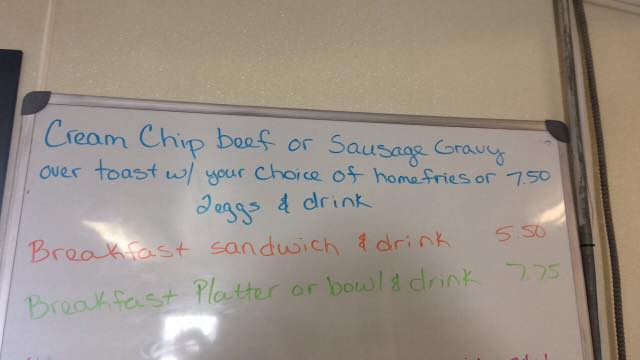 Cream Chip beef or Sausage Gravy
over toast w/ your choice of homefries or 7.50
2eggs & drink
Breakfast sandwich & drink 5.50
Breakfast Platter or bowl & drink 7.75